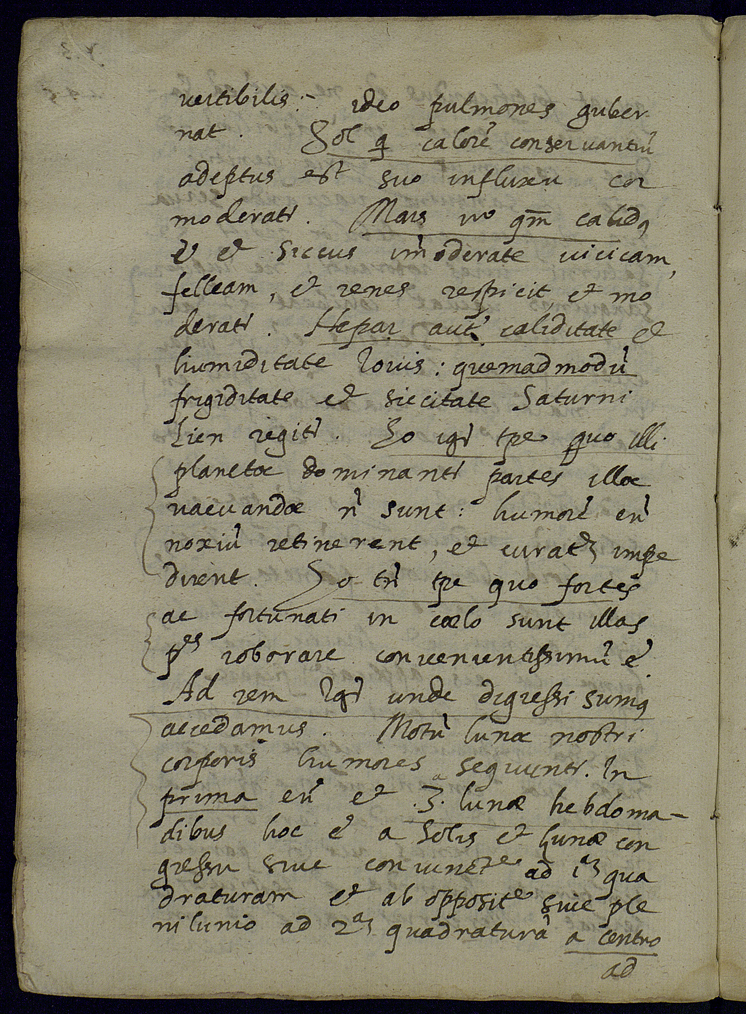 vertibilis:- ideo pulmones guber
nat. Sol q calorē conservantiū
adeptus est suo influxu cor
moderatr. Mars vo qm calidq
ē et siccus im̄oderate vivicam,
felleam, et renes respicit, et mo
deratr. Hepar aut caliditate et
humiditate Iovis: quemadmodū
frigiditate et siccitate Saturni
Lien regitr. Eo igr tpe quo illi
planetæ dominantr partes illæ
vacuandæ n̄ sunt: humorē en̄
noxiū retinerent, et curatē impe
dirent. Eo tn̄ tpe quo fortes
ac fortunati in cœlo sunt illas
ptes roborare convenientissimū ē.
Ad rem igr unde digressi sumq
accedamus. Motū lunæ nostri
corporis humores sequuntr. In
prima en̄ et 3.a lunæ hebdoma-
dibus hoc ē a Solis et lunæ con
gressu sive coniunct.e ad 1am qua
draturam et ab opposit.e sive ple
nilunio ad 2am quadraturā a centro
ad